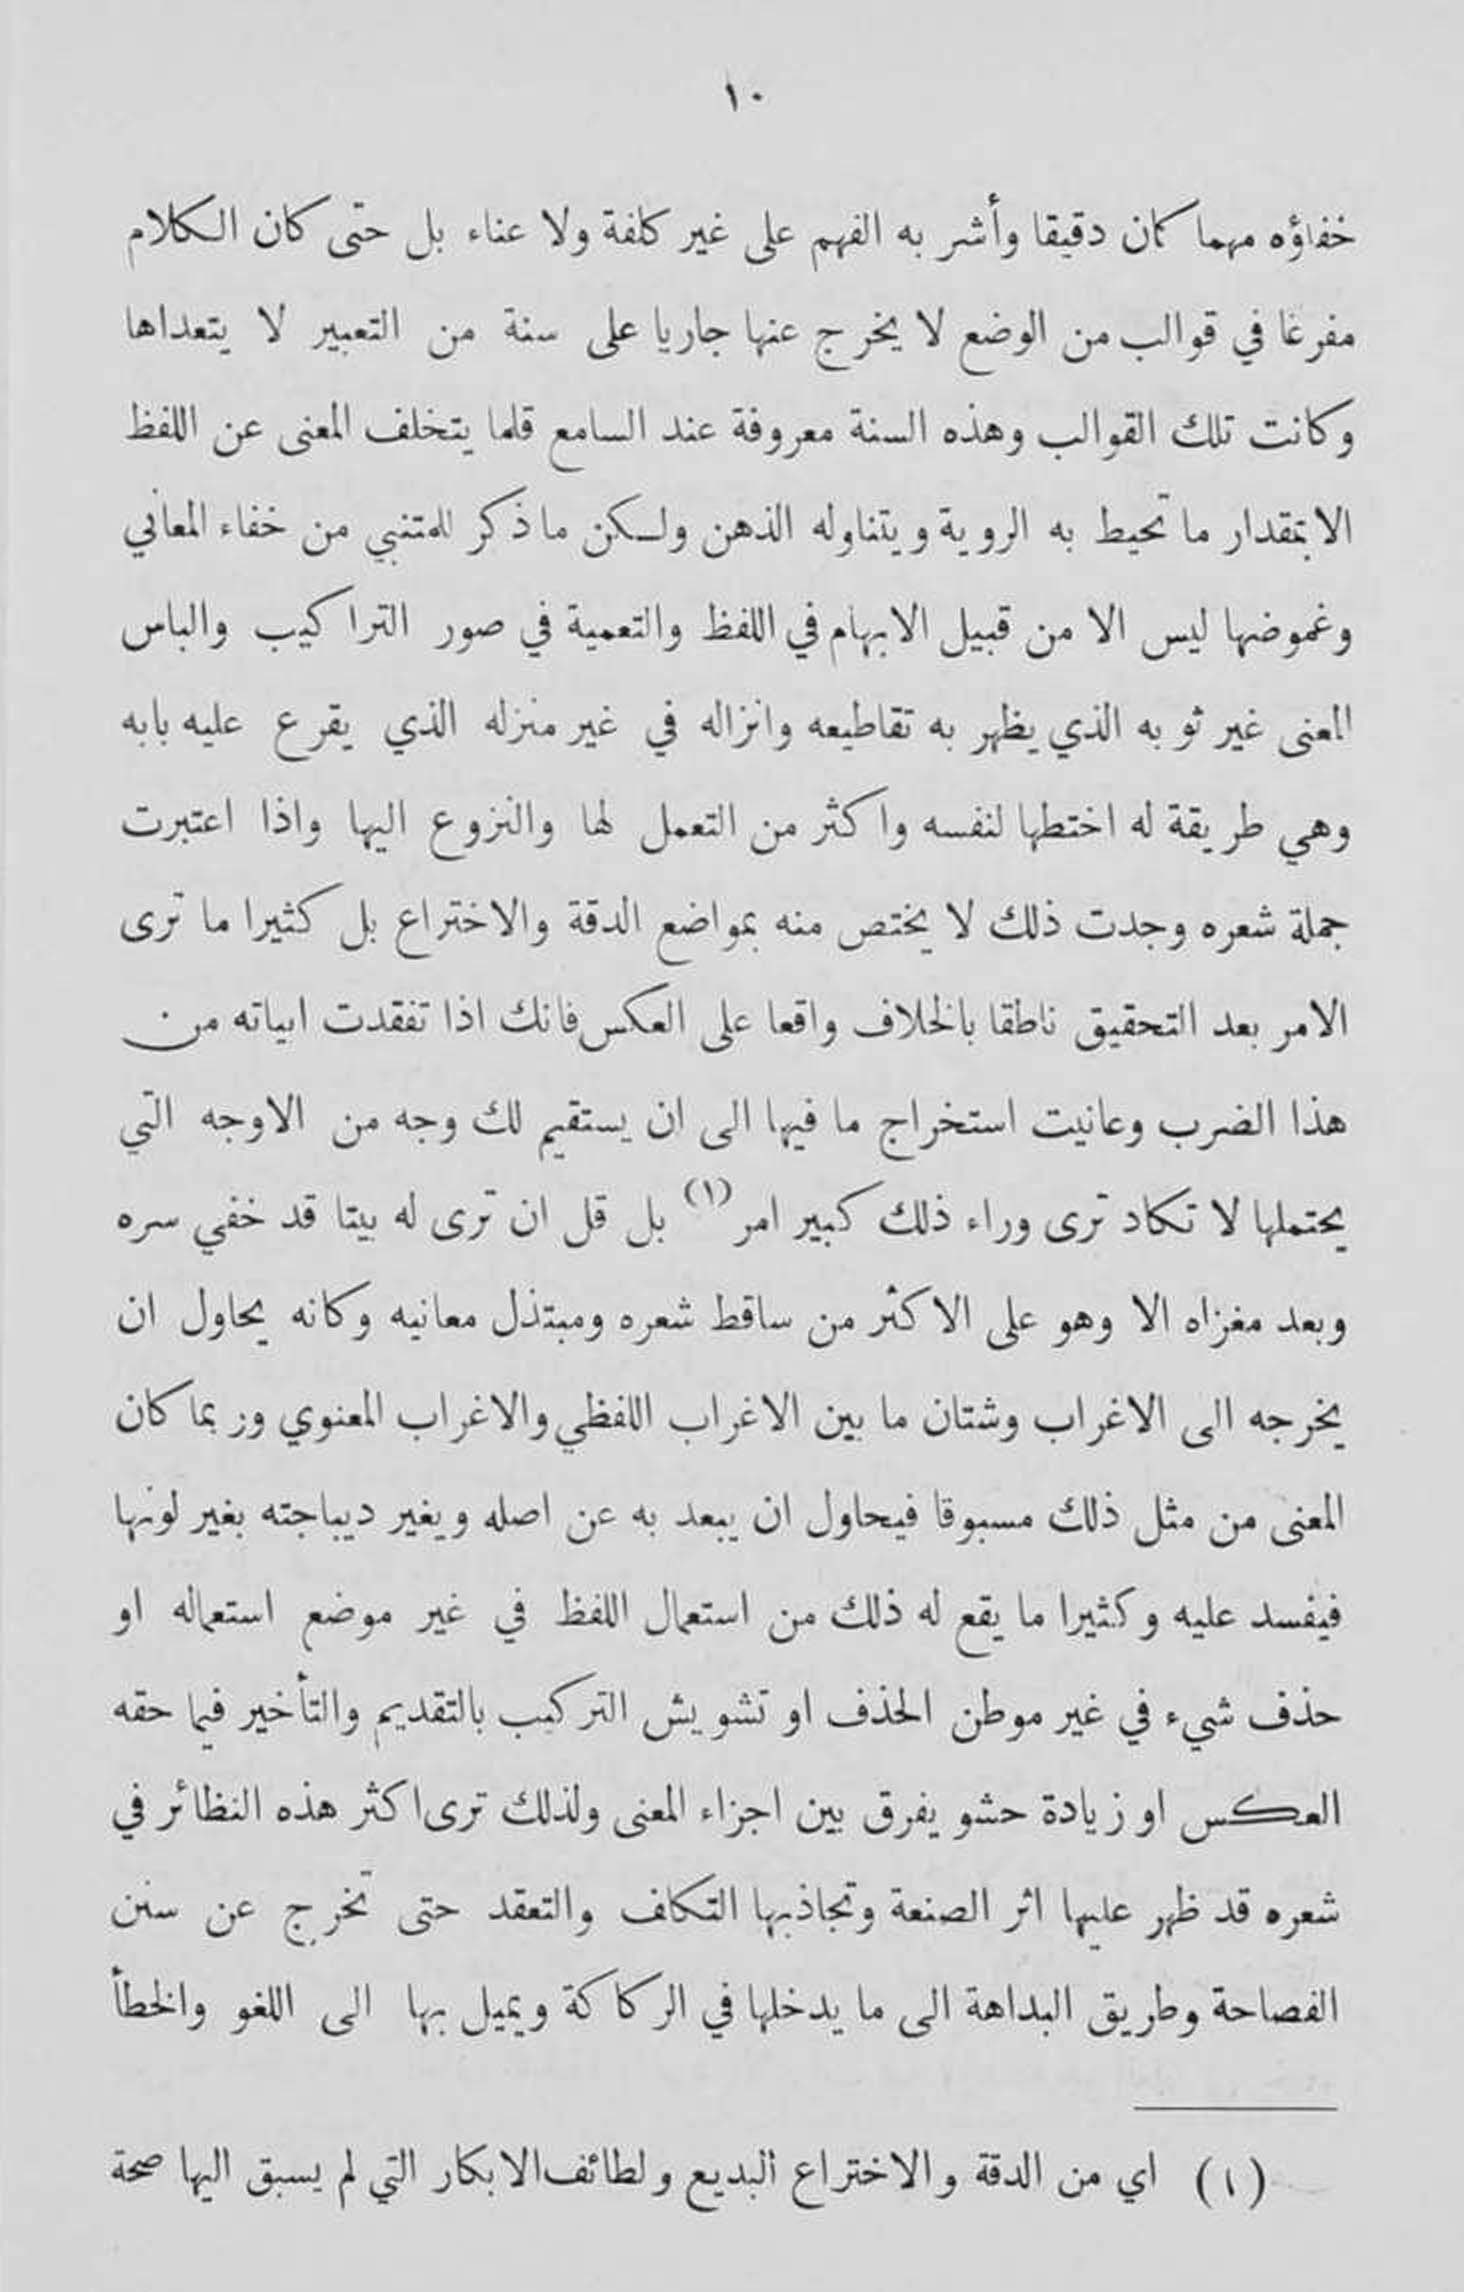 ١٠
خفاؤه مهما كان دقيقا وأشر به الفهم على غير كلفة ولا عناء بل حتى كان الكلام
مفرغا في قوالب من الوضع لا يخرج عنها جاريا على سنة من التعبير لا يتعداها
وكانت تلك القوالب وهذه السنة معروفة عند السامع قلما يتخلف المعنى عن اللفظ
الا بمقدار ما تحيط به الروية ويتناوله الذهن ولكن ما ذكر للمتنبي من خفاء المعاني
وغموضها ليس الا من قبيل الابهام في اللفظ والتعمية في صور التراكيب والباس
المعنى غير ثوبه الذي يظهر به تقاطيعه وانزاله في غير منزله الذي يقرع عليه بابه
وهي طريقة له اختطها لنفسه واكثر من التعمل لها والنزوع اليها واذا اعتبرت
جملة شعره وجدت ذلك لا يختص منه بمواضع الدقة والاختراع بل كثيرا ما ترى
الامر بعد التحقيق ناطقا بالخلاف واقعا على العكس فانك اذا تفقدت ابياته من
هذا الضرب وعانيت استخراج ما فيها الى ان يستقيم لك وجه من الاوجه التي
يحتملها لا تكاد ترى وراء ذلك كبير امر (١) بل قل ان ترى له بيتا قد خفي سره
وبعد مغزاه الا وهو على الاكثر من ساقط شعره ومبتذل معانيه وكانه يحاول ان
يخرجه الى الاغراب وشتان ما بين الاغراب اللفظي والاغراب المعنوي وربما كان
المعنى من مثل ذلك مسبوقا فيحاول ان يبعد به عن اصله ويغير ديباجته بغير لونها
فيفسد عليه وكثيرا ما يقع له ذلك من استعمال اللفظ في غير موضع استعماله او
حذف شيء في غير موطن الحذف او تشويش التركيب بالتقديم والتأخير فيما حقه
العكس او زيادة حشو يفرق بين اجزاء المعنى ولذلك ترى اكثر هذه النظائر في
شعره قد ظهر عليها اثر الصنعة وتجاذبها التكلف والتعقد حتى تخرج عن سنن
الفصاحة وطريق البداهة الى ما يدخلها في الركاكة ويميل بها الى اللغو والخطأ
(١) اي من الدقة والاختراع البديع ولطائف الابكار التي لم يسبق اليها صحة